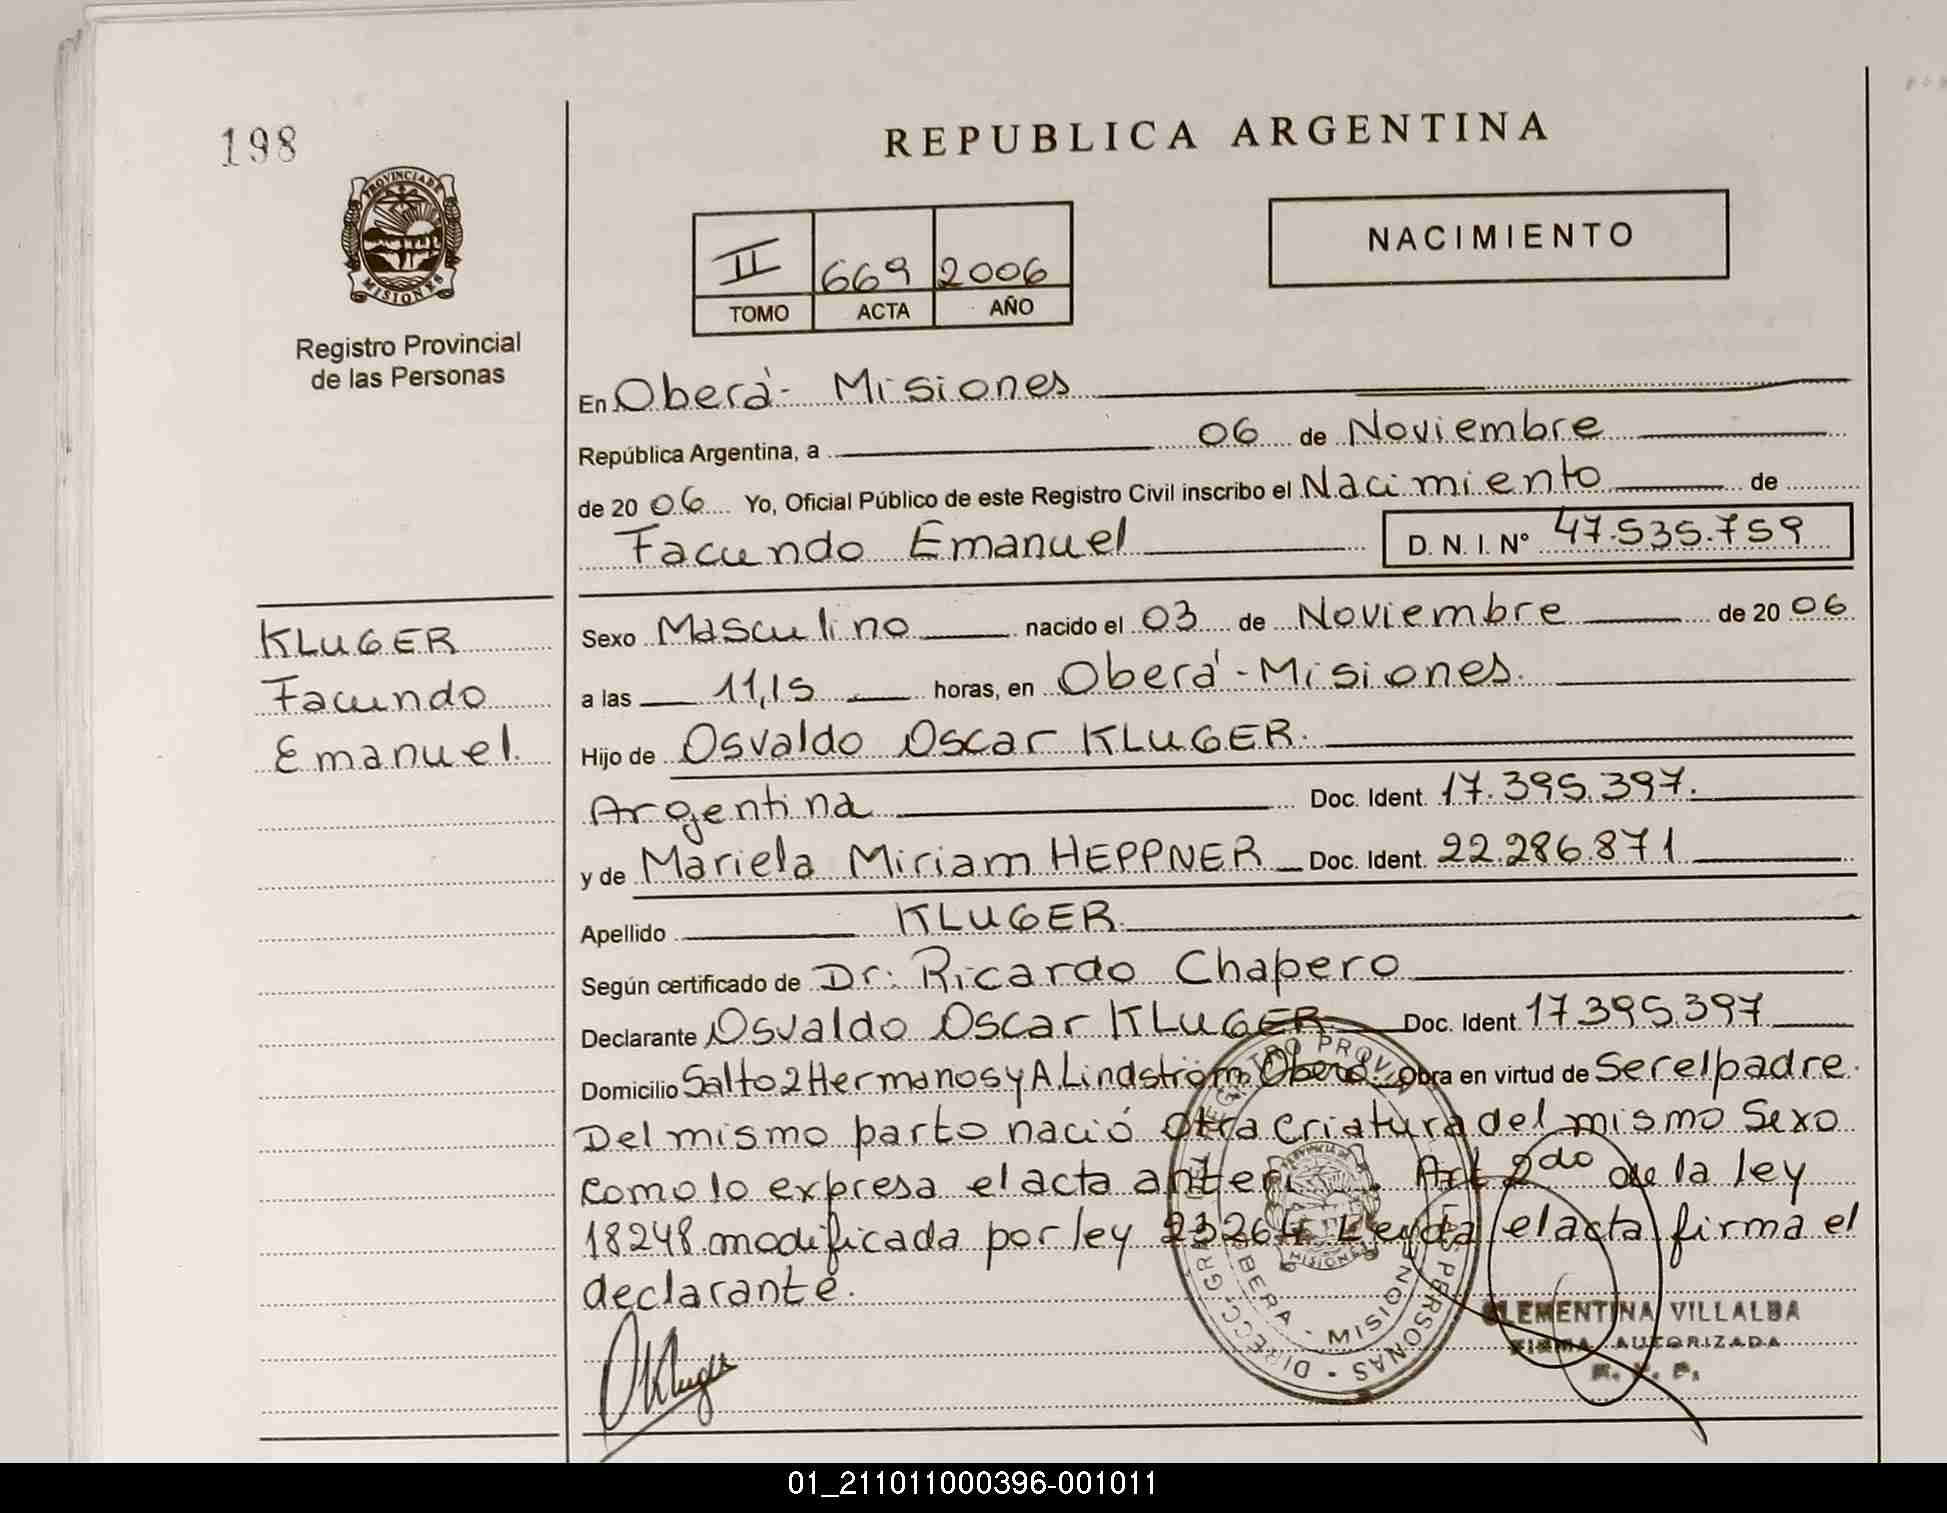 198
PROVINCIA DE
MISIONES
Registro Provincial
de las Personas
REPUBLICA ARGENTINA
II 669 2006
TOMO ACTA AÑO
NACIMIENTO
En Oberá - Misiones
República Argentina, a 06 de Noviembre
de 2006 Yo, Oficial Público de este Registro Civil inscribo el Nacimiento de
Facundo Emanuel D. N. I. N° 47.535.759
KLUGER
Facundo
Emanuel.
Sexo Masculino nacido el 03 de Noviembre de 2006
a las 11,15 horas, en Oberá - Misiones.
Hijo de Osvaldo Oscar KLUGER.
Argentina Doc. Ident. 17.395.397.
y de Mariela Miriam HEPPNER Doc. Ident. 22.286.871
Apellido KLUGER.
Según certificado de Dr: Ricardo Chapero
Declarante Osvaldo Oscar KLUGER Doc. Ident. 17395.397
Domicilio Salto 2 Hermanos y A. Lindström Oberá. Obra en virtud de Ser el padre.
Del mismo parto nació otra criatura del mismo Sexo
como lo expresa el acta Art 2do de la ley
18248 modificada por ley 23264 Leyda el acta firma el
declarante.
OKluger
DIRECC. GRAL. REGISTRO PROV. PERSONAS
OBERA - MISIONES
PROVINCIA DE
MISIONES
CLEMENTINA VILLALBA
FIRMA AUTORIZADA
R. P. P.
01_211011000396-001011